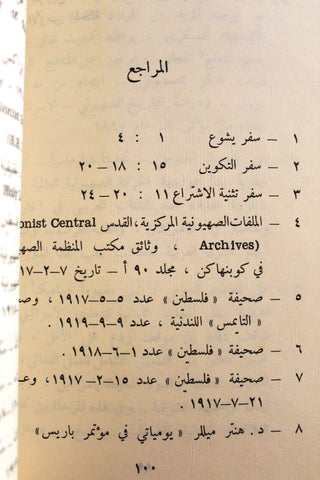 المراجع
١ – سفر يشوع ١ : ٤
٢ – سفر التكوين ١٥ : ١٨–٢٠
٣ – سفر تثنية الاشتراع ١١ : ٢٠–٢٤
٤ – الملفات الصهيونية المركزية، القدس onist Central
Archives) ، وثائق مكتب المنظمة الصه
في كوبنهاكن، مجلد ٩٠ أ – تاريخ ٧–٢–١٧
٥ – صحيفة « فلسطين » عدد ٥–٥–١٩١٧ ، وص
« التايمس » اللندنية ، ٩–٩–١٩١٩ .
٦ – صحيفة « فلسطين » عدد ١–٦–١٩١٨ .
٧ – صحيفة « فلسطين » عدد ١٥–٢–١٩١٧ ، وعد
٢١–٧–١٩١٧ .
٨ – د. هنتر ميللر « يومياتي في مؤتمر باريس »
١٠٠